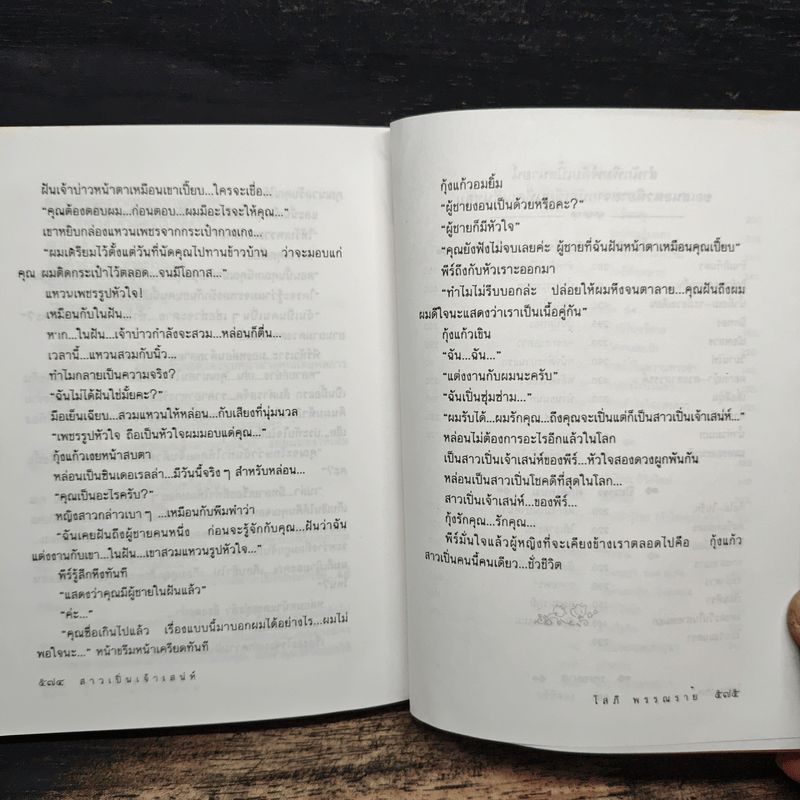 ฝันเจ้าบ่าวหน้าตาเหมือนเขาเปี๊ยบ...ใครจะเชื่อ...
“คุณต้องตอบผม...ก่อนตอบ...ผมมีอะไรจะให้คุณ...”
เขาหยิบกล่องแหวนเพชรจากกระเป๋ากางเกง...
“ผมเตรียมไว้ตั้งแต่วันที่นัดคุณไปทานข้าวบ้าน ว่าจะมอบแก่
คุณ ผมติดกระเป๋าไว้ตลอด...จนมีโอกาส...”
แหวนเพชรรูปหัวใจ!
เหมือนกับในฝัน...
หาก...ในฝัน...เจ้าบ่าวกำลังจะสวม...หล่อนก็ตื่น...
เวลานี้...แหวนสวมกับนิ้ว...
ทำไมกลายเป็นความจริง?
“ฉันไม่ได้ฝันใช่มั้ยคะ?”
มือเย็นเฉียบ...สวมแหวนให้หล่อน...กับเสียงที่นุ่มนวล
“เพชรรูปหัวใจ ถือเป็นหัวใจผมมอบแด่คุณ...”
กุ้งแก้วเงยหน้าสบตา
หล่อนเป็นซินเดอเรลล่า...มีวันนี้จริงๆ สำหรับหล่อน...
“คุณเป็นอะไรครับ?”
หญิงสาวกล่าวเบาๆ ...เหมือนกับพึมพำว่า
“ฉันเคยฝันถึงผู้ชายคนหนึ่ง ก่อนจะรู้จักกับคุณ...ฝันว่าฉัน
แต่งงานกับเขา...ในฝัน...เขาสวมแหวนรูปหัวใจ...”
พีร์รู้สึกหึงทันที
“แสดงว่าคุณมีผู้ชายในฝันแล้ว”
“ค่ะ...”
“คุณซื่อเกินไปแล้ว เรื่องแบบนี้มาบอกผมได้อย่างไร...ผมไม่
พอใจนะ...” หน้าขรึมหน้าเครียดทันที
๕๗๔ สาวเปิ่นเจ้าเสน่ห์
กุ้งแก้วอมยิ้ม
“ผู้ชายงอนเป็นด้วยหรือคะ?”
“ผู้ชายก็มีหัวใจ”
“คุณยังฟังไม่จบเลยค่ะ ผู้ชายที่ฉันฝันหน้าตาเหมือนคุณเปี๊ยบ”
พีร์ถึงกับหัวเราะออกมา
“ทำไมไม่รีบบอกล่ะ ปล่อยให้ผมหึงจนตาลาย...คุณฝันถึงผม
ผมดีใจนะแสดงว่าเราเป็นเนื้อคู่กัน”
กุ้งแก้วเขิน
“ฉัน...ฉัน...”
“แต่งงานกับผมนะครับ”
“ฉันเปิ่นซุ่มซ่าม...”
“ผมรับได้...ผมรักคุณ...ถึงคุณจะเปิ่นแต่ก็เป็นสาวเปิ่นเจ้าเสน่ห์...”
หล่อนไม่ต้องการอะไรอีกแล้วในโลก
เป็นสาวเปิ่นเจ้าเสน่ห์ของพีร์...หัวใจสองดวงผูกพันกัน
หล่อนเป็นสาวเปิ่นโชคดีที่สุดในโลก...
สาวเปิ่นเจ้าเสน่ห์...ของพีร์...
กุ้งรักคุณ...รักคุณ...
พีร์มั่นใจแล้วผู้หญิงที่จะเคียงข้างเราตลอดไปคือ กุ้งแก้ว
สาวเปิ่นคนนี้คนเดียว...ชั่วชีวิต
โสภี พรรณราย ๕๗๕